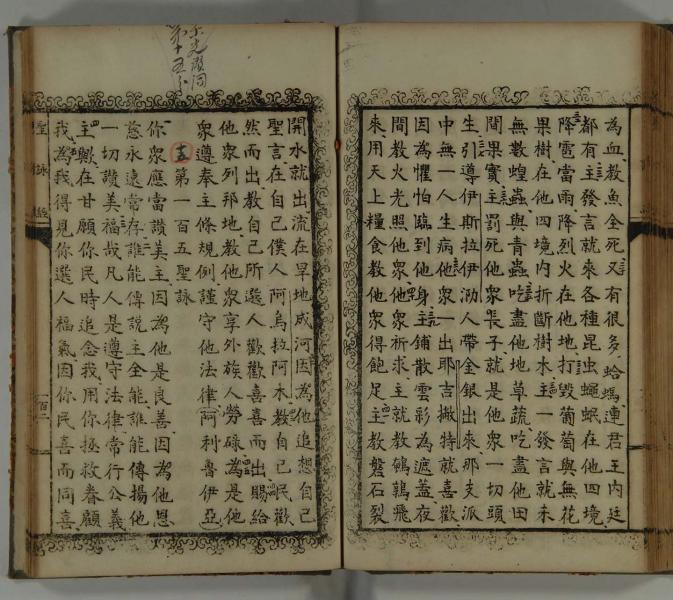 為血教魚全死又有很多蛤螞連君王內廷
都有主發言就來各種昆虫蠅蚊在他四境
降雹當雨降烈火在他地打毀葡萄與無花
果樹在他四境內折斷樹木主一發言就來
無數蝗蟲與青蟲吃盡他地草蔬吃盡他田
間果實主罰死他眾長子就是他眾一切頭
生引導伊斯拉伊泐人帶金銀出來那支派
中無一人生病他眾一出耶吉撇特就喜歡
因為懼怕臨到他身主鋪散雲彩為遮蓋夜
間教火光照他眾他眾祈求主就教鵪鶉飛
來用天上糧食教他眾得飽足主教磐石裂
開水就出流在旱地成河因為他追想自己
聖言在自己僕人阿烏拉阿木教自己民歡
然而出教自己所選人歡歡喜喜而出賜給
他眾列邦地教他眾享外族人勞碌為是他
眾遵奉主條規例謹守他法律阿利魯伊亞
第一百五聖詠
你眾應當讚美主因為他是良善因為他恩
慈永遠當存誰能傳說主全能誰能傳揚他
一切讚美福哉凡人是遵守法律常行公義
主歟在甘願你民時追念我用你拯救眷顧
我為我得見你選人福氣因你民喜而同喜
聖詠經
一百二